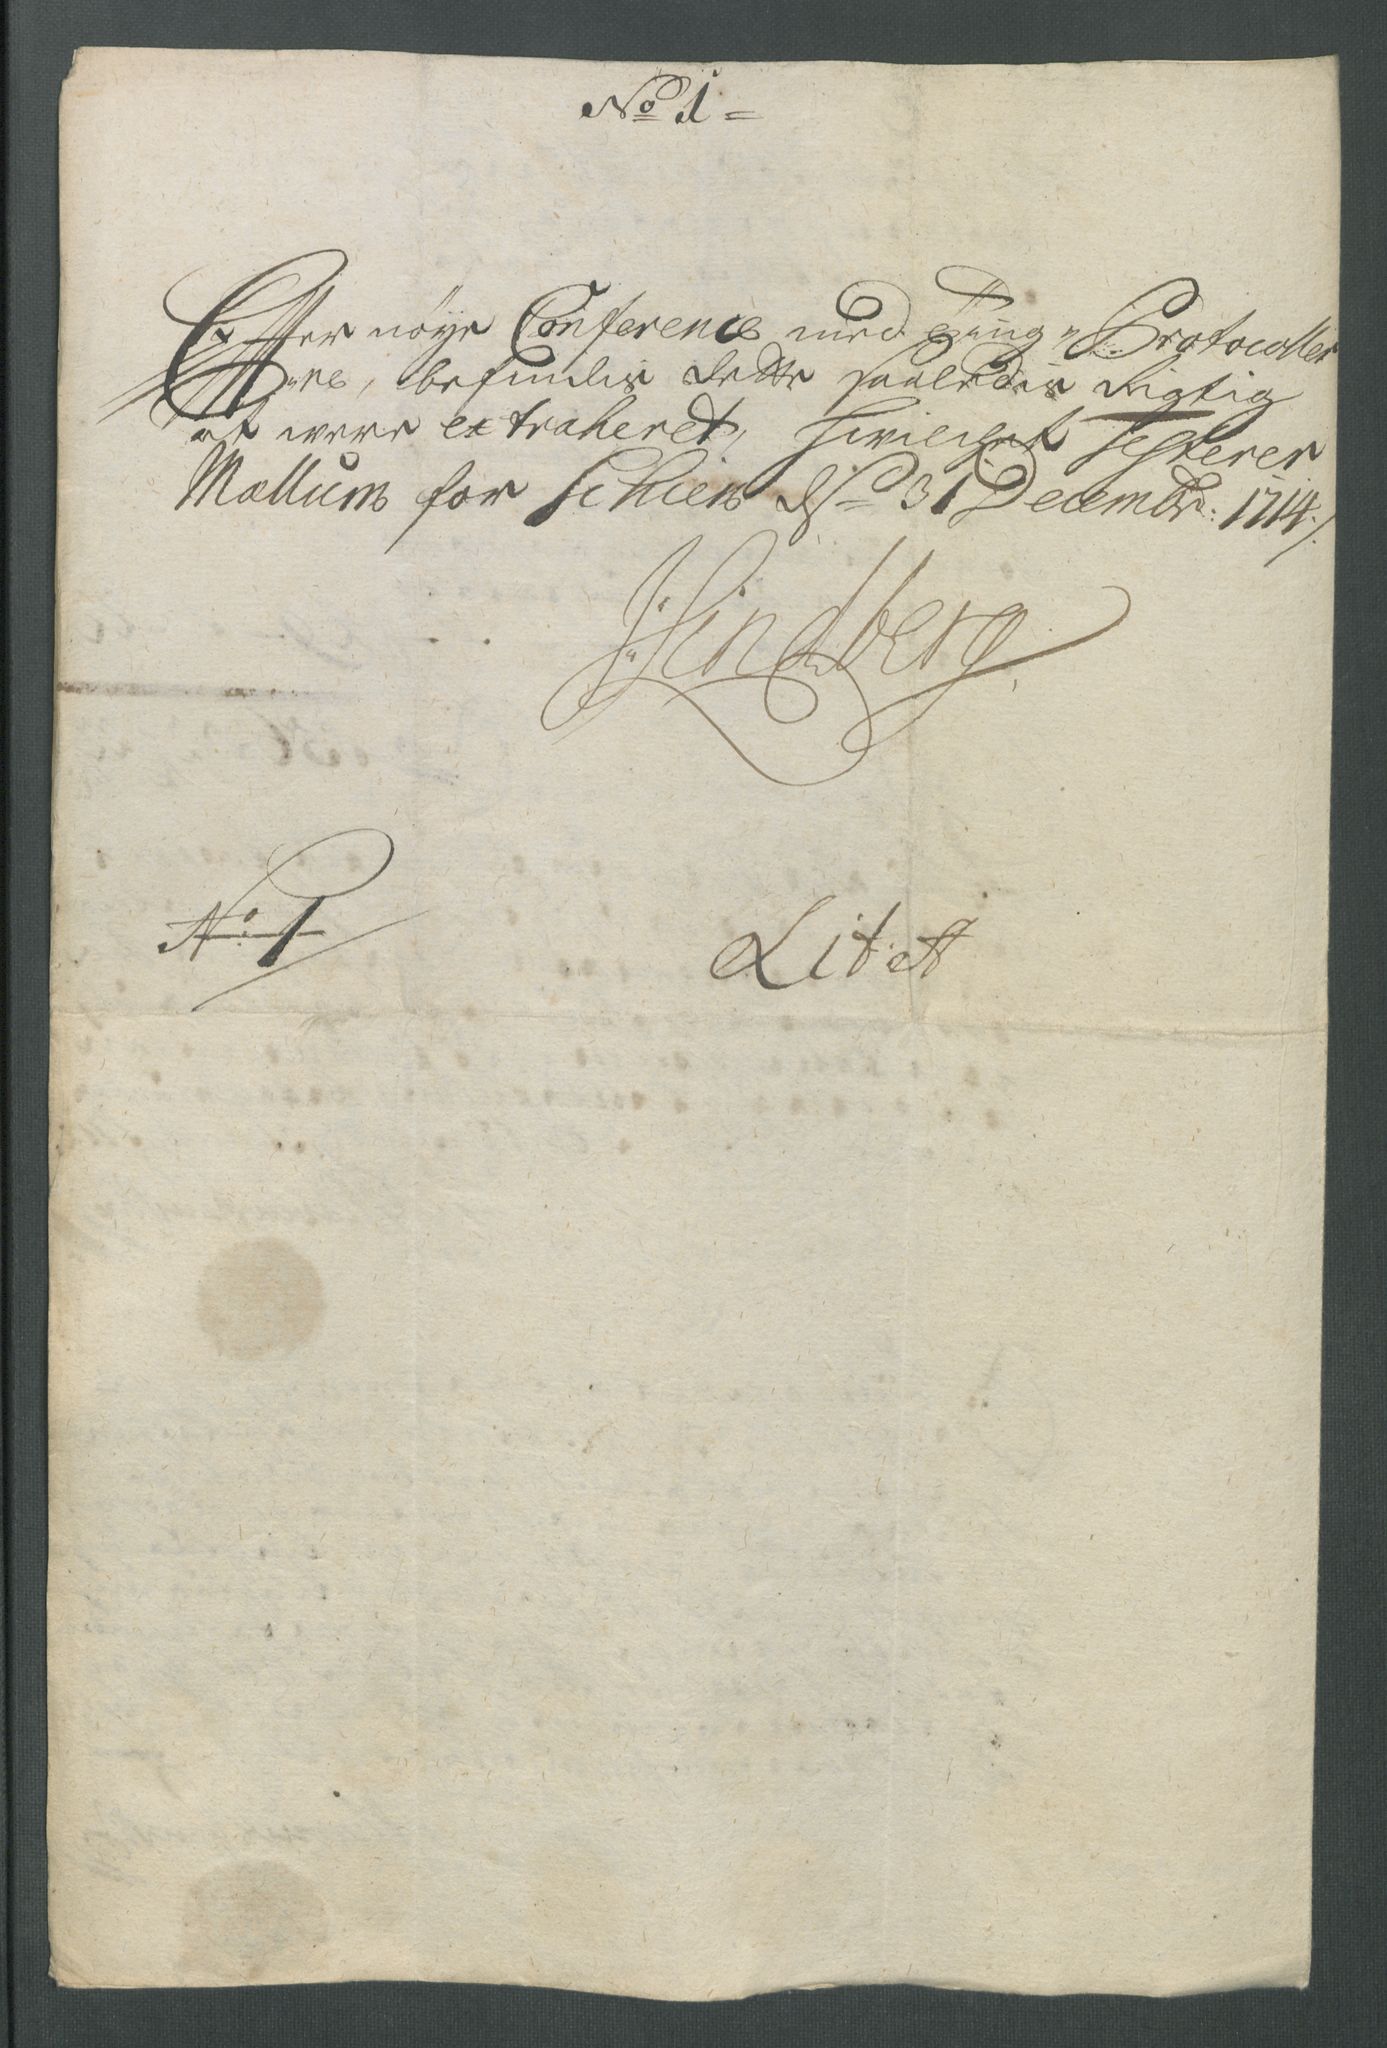 No 1 =
Effter nøye Conference med Ting-Protocoller
ne, befindis dette saaledis rigtig
at were extraheret, hvilchet testerer
Mællum for Schien d 31 Decembr: 1714 /.
Lindberg
No: 1
Lit: A